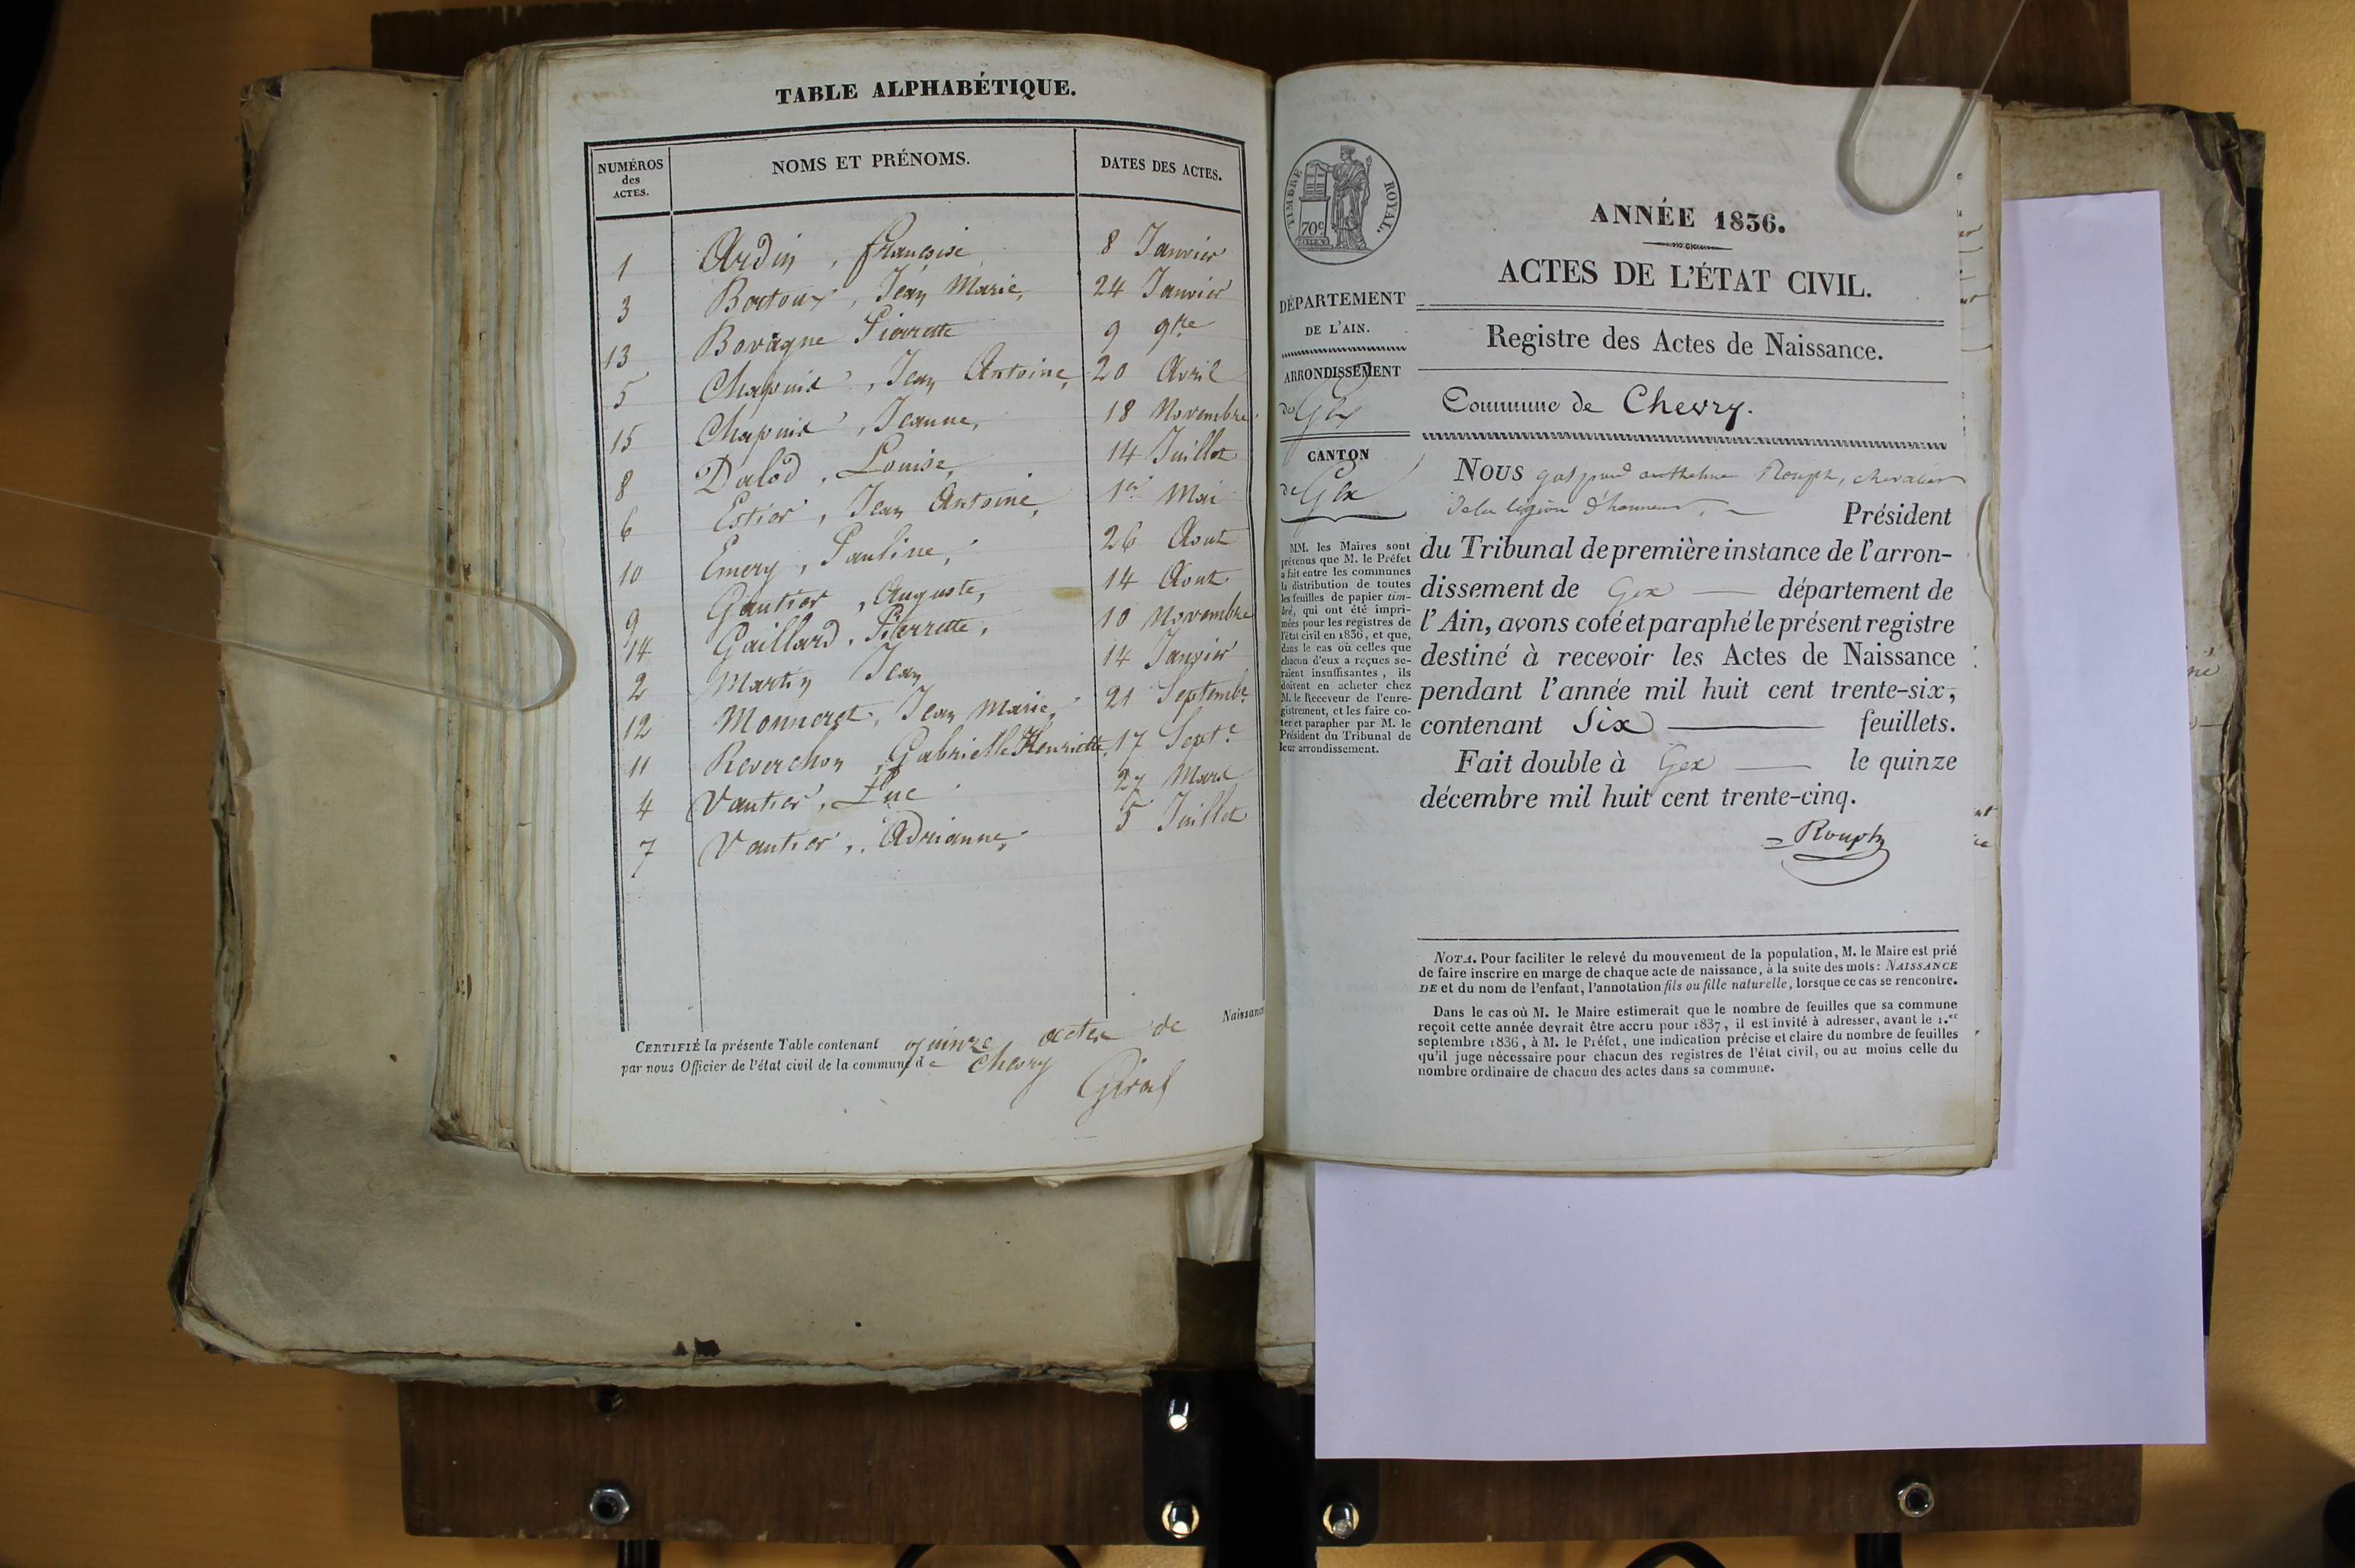 TABLE ALPHABÉTIQUE.
NUMÉROS des ACTES. NOMS ET PRÉNOMS. DATES DES ACTES.
1 Ardin, françoise 8 Janvier
3 Bortoux, Jean Marie, 24 Janvier
13 Bovagne Pierrette 9 9bre
5 Chapuis, Jean Antoine, 20 Avril
15 Chapuis, Jeanne, 18 Novembre
8 Dalod, Louise, 14 Juillet
6 Estier, Jean Antoine, 1er Mai
10 Emery, Pauline, 26 Aout
9 Gautier, Auguste, 14 Aout
14 Gaillard, Pierrette, 10 Novembre
2 Martin Jean 14 Janvier
12 Monneret, Jean Marie, 21 Septembe
11 Reverchon, Gabrielle Henriette, 17 Septe
4 Vautier, Luc 27 Mars
7 Vautier, Adrianne, 5 Juillet
CERTIFIÉ la présente Table contenant quinze actes de Naissance
par nous Officier de l'état civil de la commune de Chevry
Girod
TIMBRE ROYAL.
70c
DÉPARTEMENT
DE L'AIN.
ARRONDISSEMENT
de Gex
CANTON
de Gex
MM. les Maires sont
prévenus que M. le Préfet
a fait entre les communes
la distribution de toutes
les feuilles de papier tim-
bré, qui ont été impri-
mées pour les registres de
l'état civil en 1836, et que,
dans le cas où celles que
chacun d'eux a reçues se-
raient insuffisantes, ils
doivent en acheter chez
M. le Receveur de l'enre-
gistrement, et les faire co-
ter et parapher par M. le
Président du Tribunal de
leur arrondissement.
ANNÉE 1836.
ACTES DE L'ÉTAT CIVIL.
Registre des Actes de Naissance.
Commune de Chevry.
NOUS gaspard anthelme Rouph, chevalier
de la légion d'honneur, Président
du Tribunal de première instance de l'arron-
dissement de Gex département de
l'Ain, avons coté et paraphé le présent registre
destiné à recevoir les Actes de Naissance
pendant l'année mil huit cent trente-six,
contenant Six feuillets.
Fait double à Gex le quinze
décembre mil huit cent trente-cinq.
Rouph
NOTA. Pour faciliter le relevé du mouvement de la population, M. le Maire est prié
de faire inscrire en marge de chaque acte de naissance, à la suite des mots: NAISSANCE
DE et du nom de l'enfant, l'annotation fils ou fille naturelle, lorsque ce cas se rencontre.
Dans le cas où M. le Maire estimerait que le nombre de feuilles que sa commune
reçoit cette année devrait être accru pour 1837, il est invité à adresser, avant le 1.er
septembre 1836, à M. le Préfet, une indication précise et claire du nombre de feuilles
qu'il juge nécessaire pour chacun des registres de l'état civil, ou au moins celle du
nombre ordinaire de chacun des actes dans sa commune.